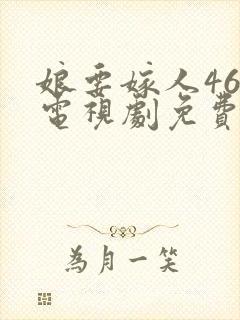 娘要嫁人46
電視劇免費
為月一笑